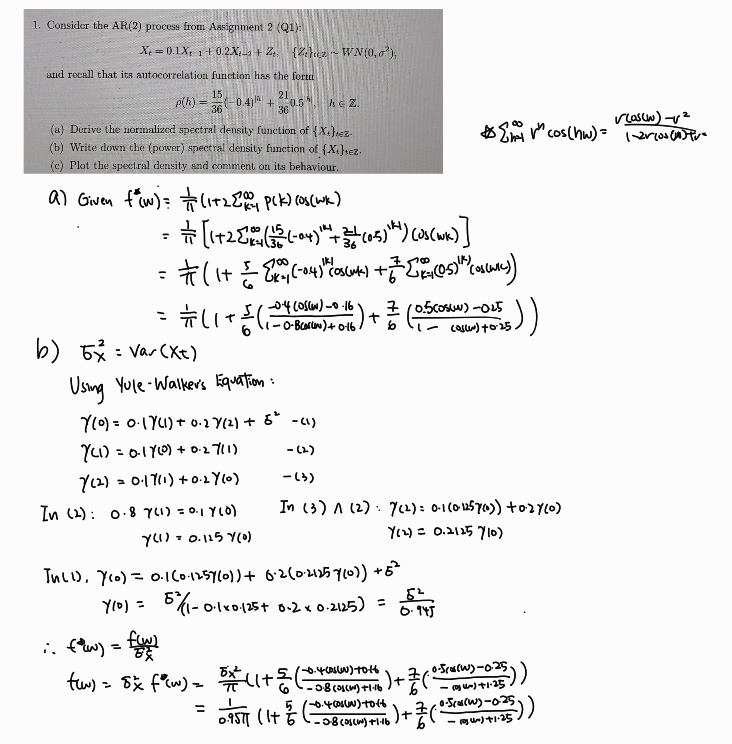 1. Consider the AR(2) process from Assignment 2 (Q1):
X_t = 0.1X_{t-1} + 0.2X_{t-2} + Z_t, {Z_t}_{t∈ℤ} ~ WN(0, σ²),
and recall that its autocorrelation function has the form
ρ(h) = 15/36 (-0.4)^{|h|} + 21/36 0.5^{|h|}, h ∈ ℤ.
(a) Derive the normalized spectral density function of {X_t}_{t∈ℤ}.
(b) Write down the (power) spectral density function of {X_t}_{t∈ℤ}.
(c) Plot the spectral density and comment on its behaviour.
Σ_{h=1}^∞ r^h cos(hw) = (rcos(w) - r²)/(1-2rcos(w)+r²
a) Given f*(w) = 1/π (1+2Σ_{k=1}^∞ ρ(k) cos(wk)
= 1/π [1+2Σ_{k=1}^∞ (15/36 (-0.4)^{|k|} + 21/36 (0.5)^{|k|}) cos(wk)]
= 1/π (1 + 5/6 Σ_{k=1}^∞ (-0.4)^{|k|} cos(wk) + 7/6 Σ_{k=1}^∞ (0.5)^{|k|} cos(wk))
= 1/π (1 + 5/6 ((-0.4cos(w) - 0.16)/(1-0.8cos(w)+0.16)) + 7/6 ((0.5cos(w) - 0.25)/(1 - cos(w)+0.25)))
b) σ_X² = Var(X_t)
Using Yule-Walker's Equation:
γ(0) = 0.1γ(1) + 0.2γ(2) + σ² -(1)
γ(1) = 0.1γ(0) + 0.2γ(1) -(2)
γ(2) = 0.1γ(1) + 0.2γ(0) -(3)
In (2): 0.8 γ(1) = 0.1 γ(0) In (3) ∧ (2): γ(2) = 0.1(0.125γ(0)) + 0.2γ(0)
γ(1) = 0.125 γ(0) γ(2) = 0.2125 γ(0)
In (1), γ(0) = 0.1(0.125γ(0)) + 0.2(0.2125γ(0)) + σ²
γ(0) = σ²/(1-0.1x0.125+ 0.2 x 0.2125) = σ²/0.945
∴ f*(w) = f(w)/σ_X²
f(w) = σ_X² f*(w) = σ_X²/π (1+5/6 ((-0.4cos(w)+0.16)/(-0.8cos(w)+1.16)) + 7/6 ((0.5cos(w)-0.25)/(-cos(w)+1.25)))
= 1/0.95π (1+5/6 ((-0.4cos(w)+0.16)/(-0.8cos(w)+1.16)) + 7/6 ((0.5cos(w)-0.25)/(-cos(w)+1.25)))